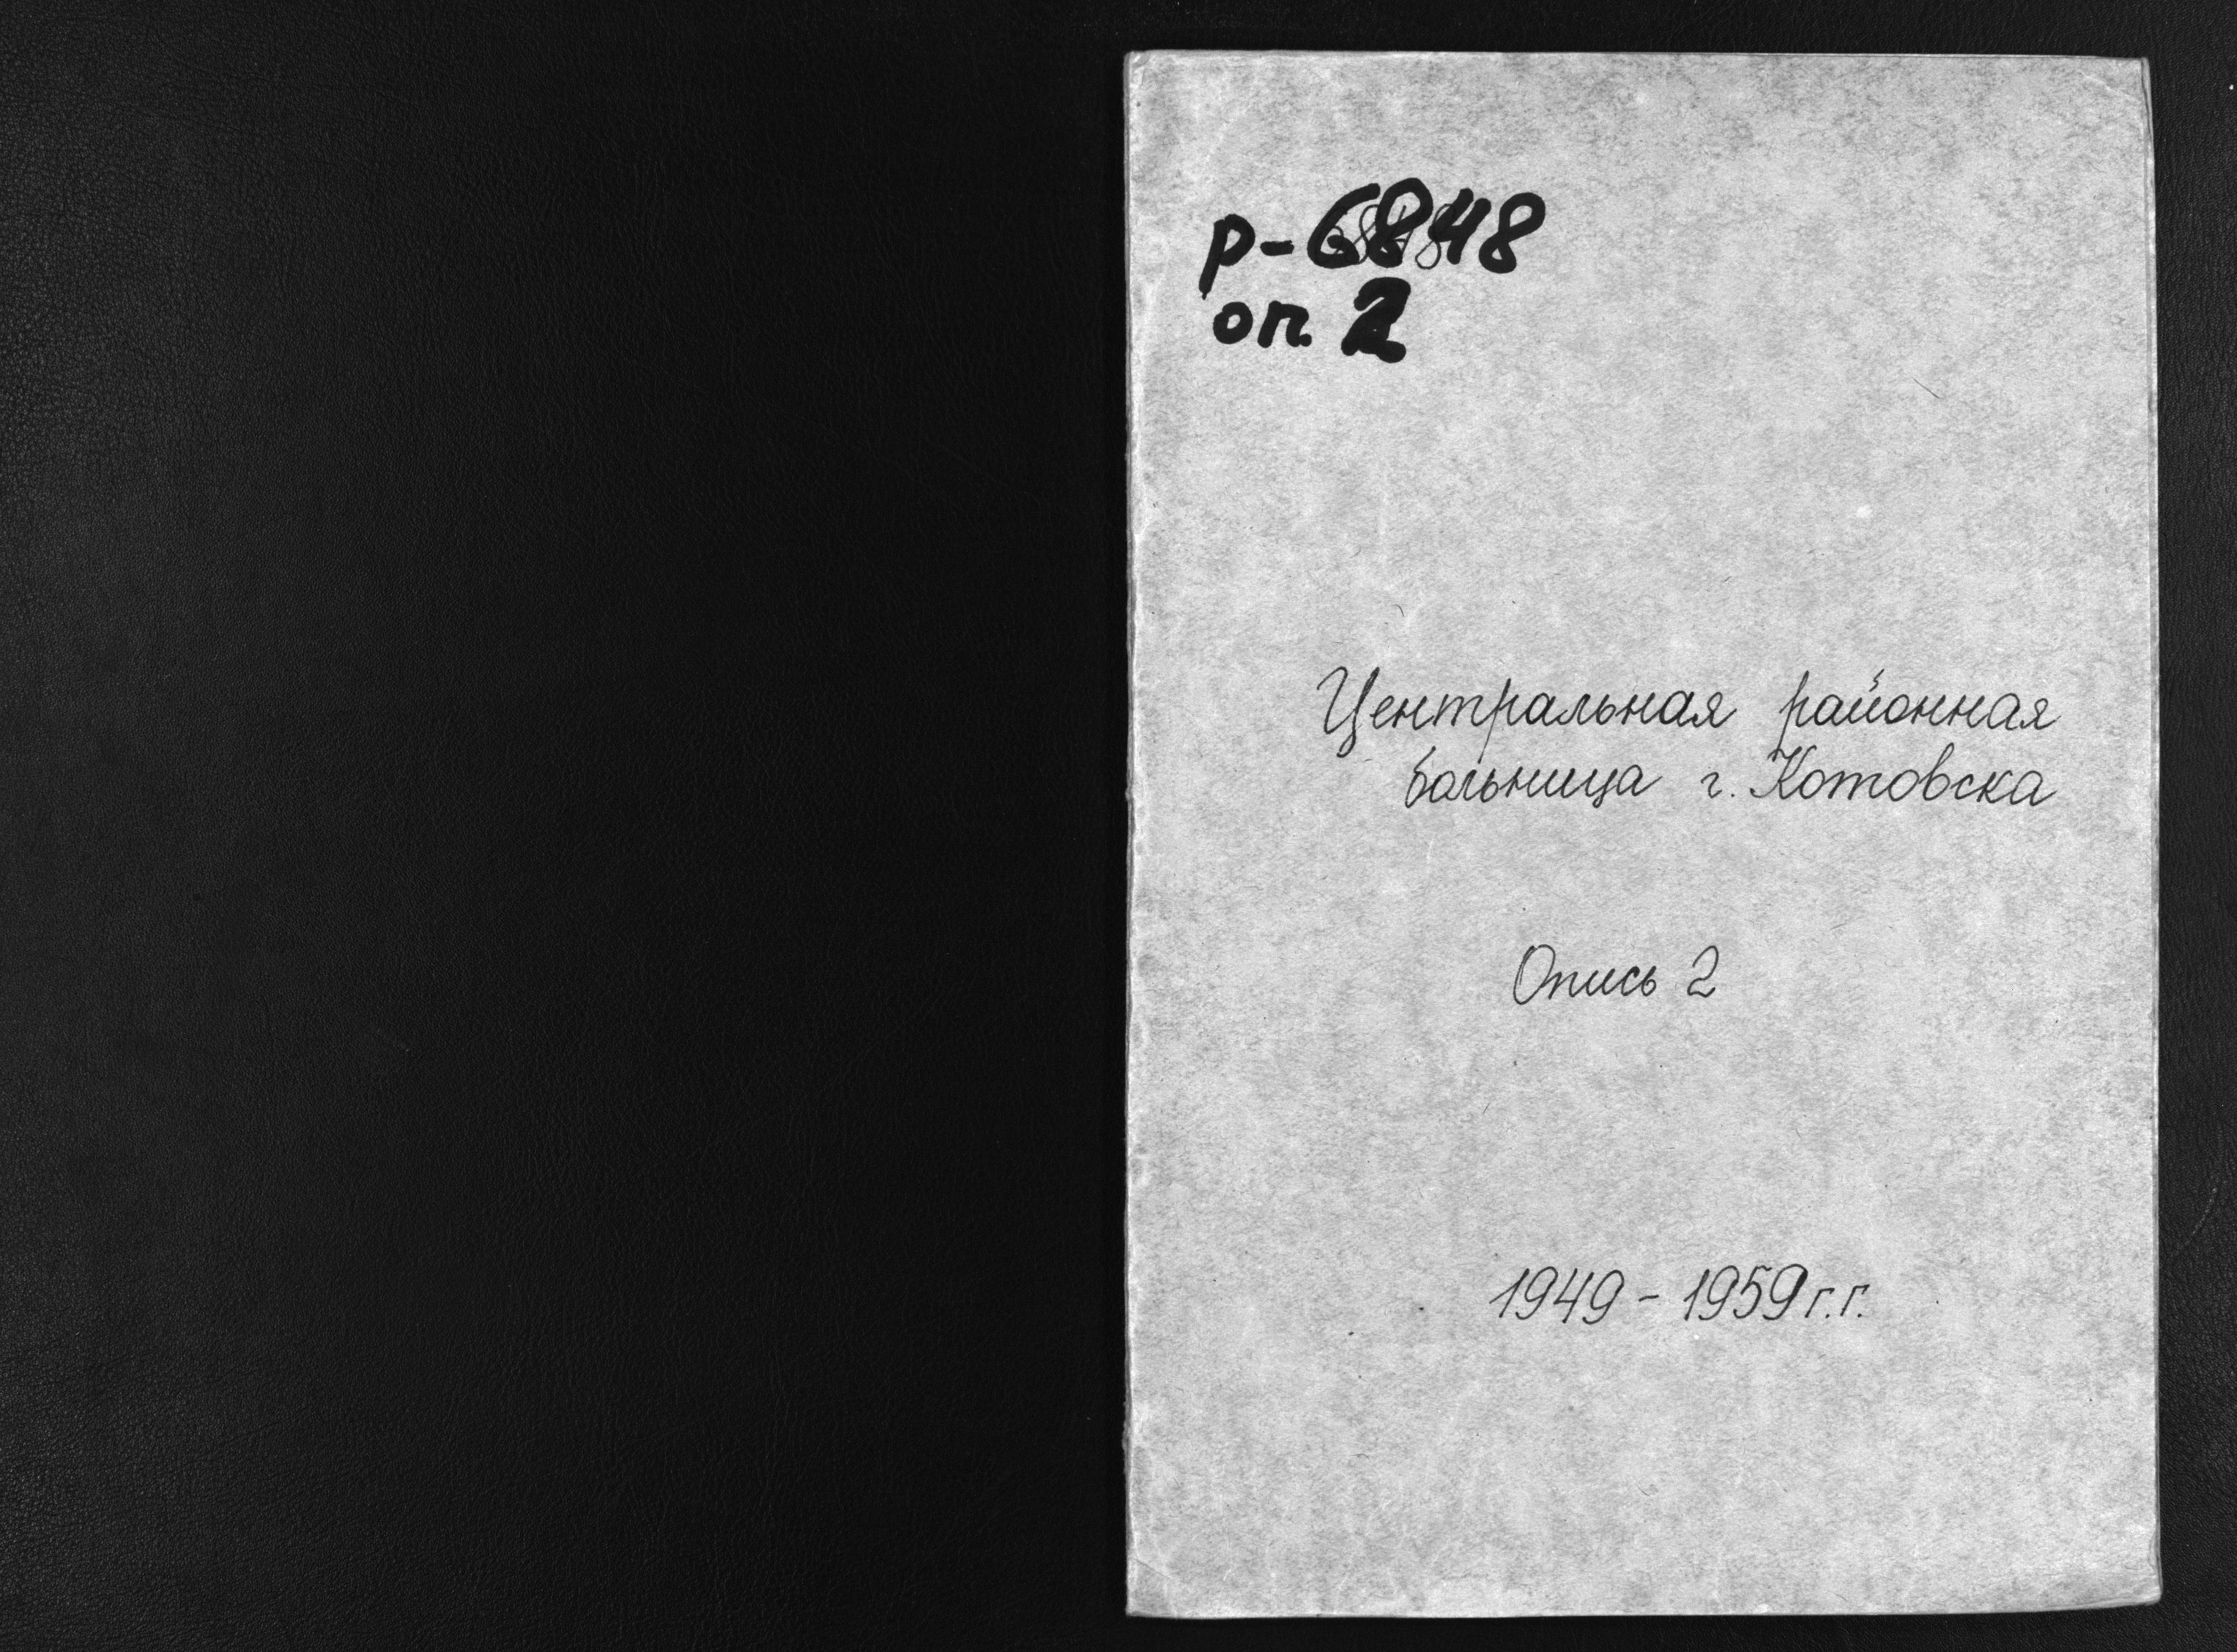 р-6848
оп. 2
Центральная районная
больница г. Котовска
Опись 2
1949 - 1959 г.г.